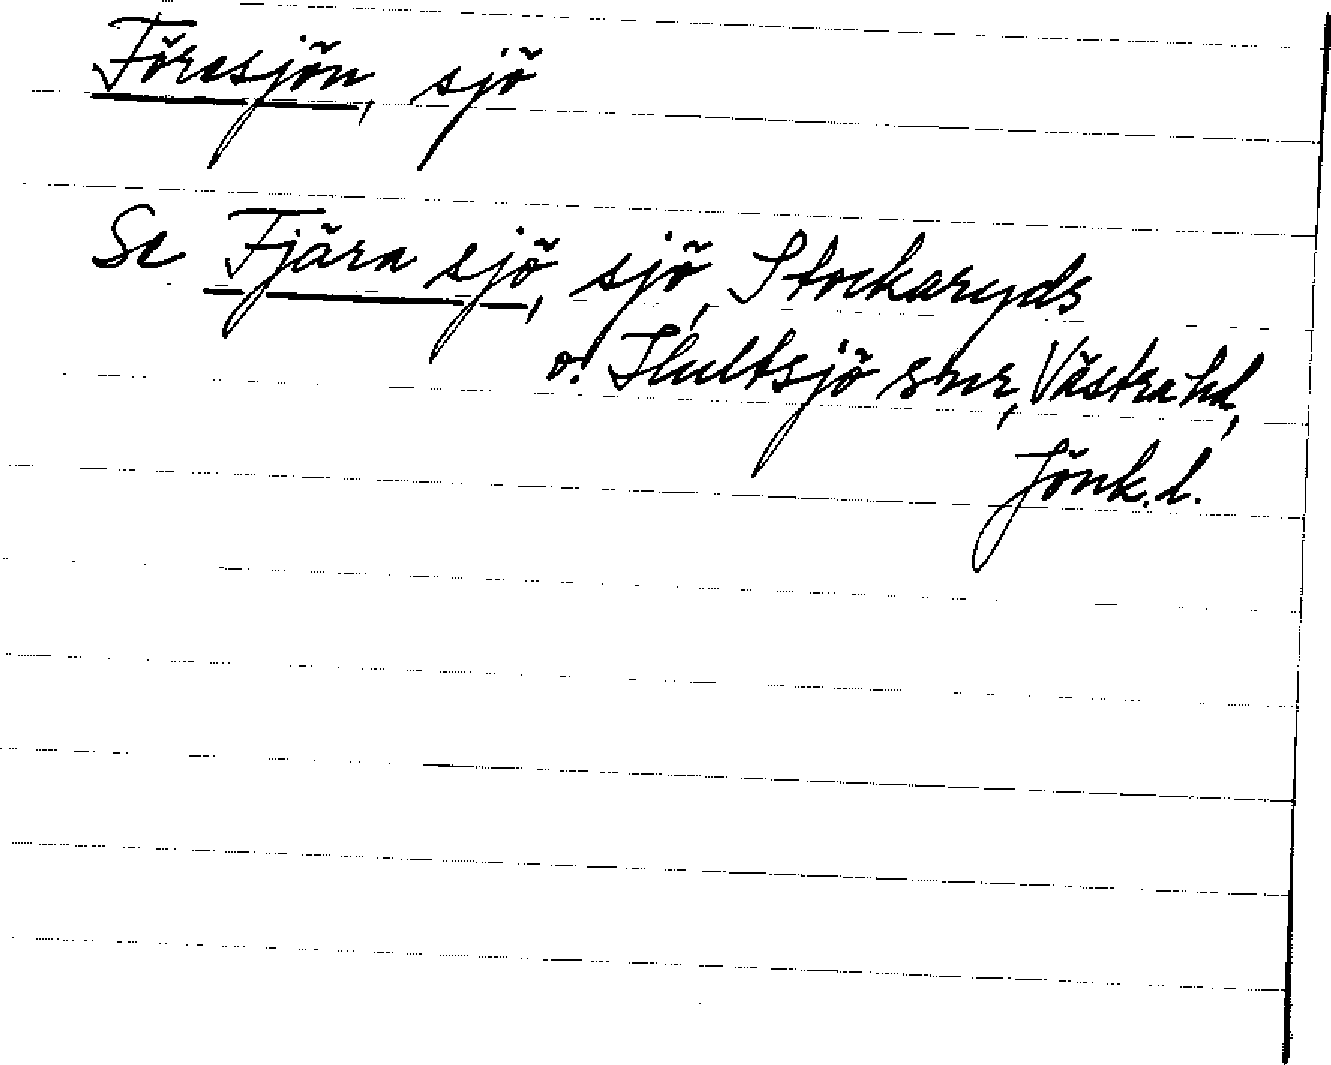 Föresjön, sjö
Se Fjära sjö, sjö, Stockaryds
o. Hultsjö snr, Västra hd,
Jönk.l.